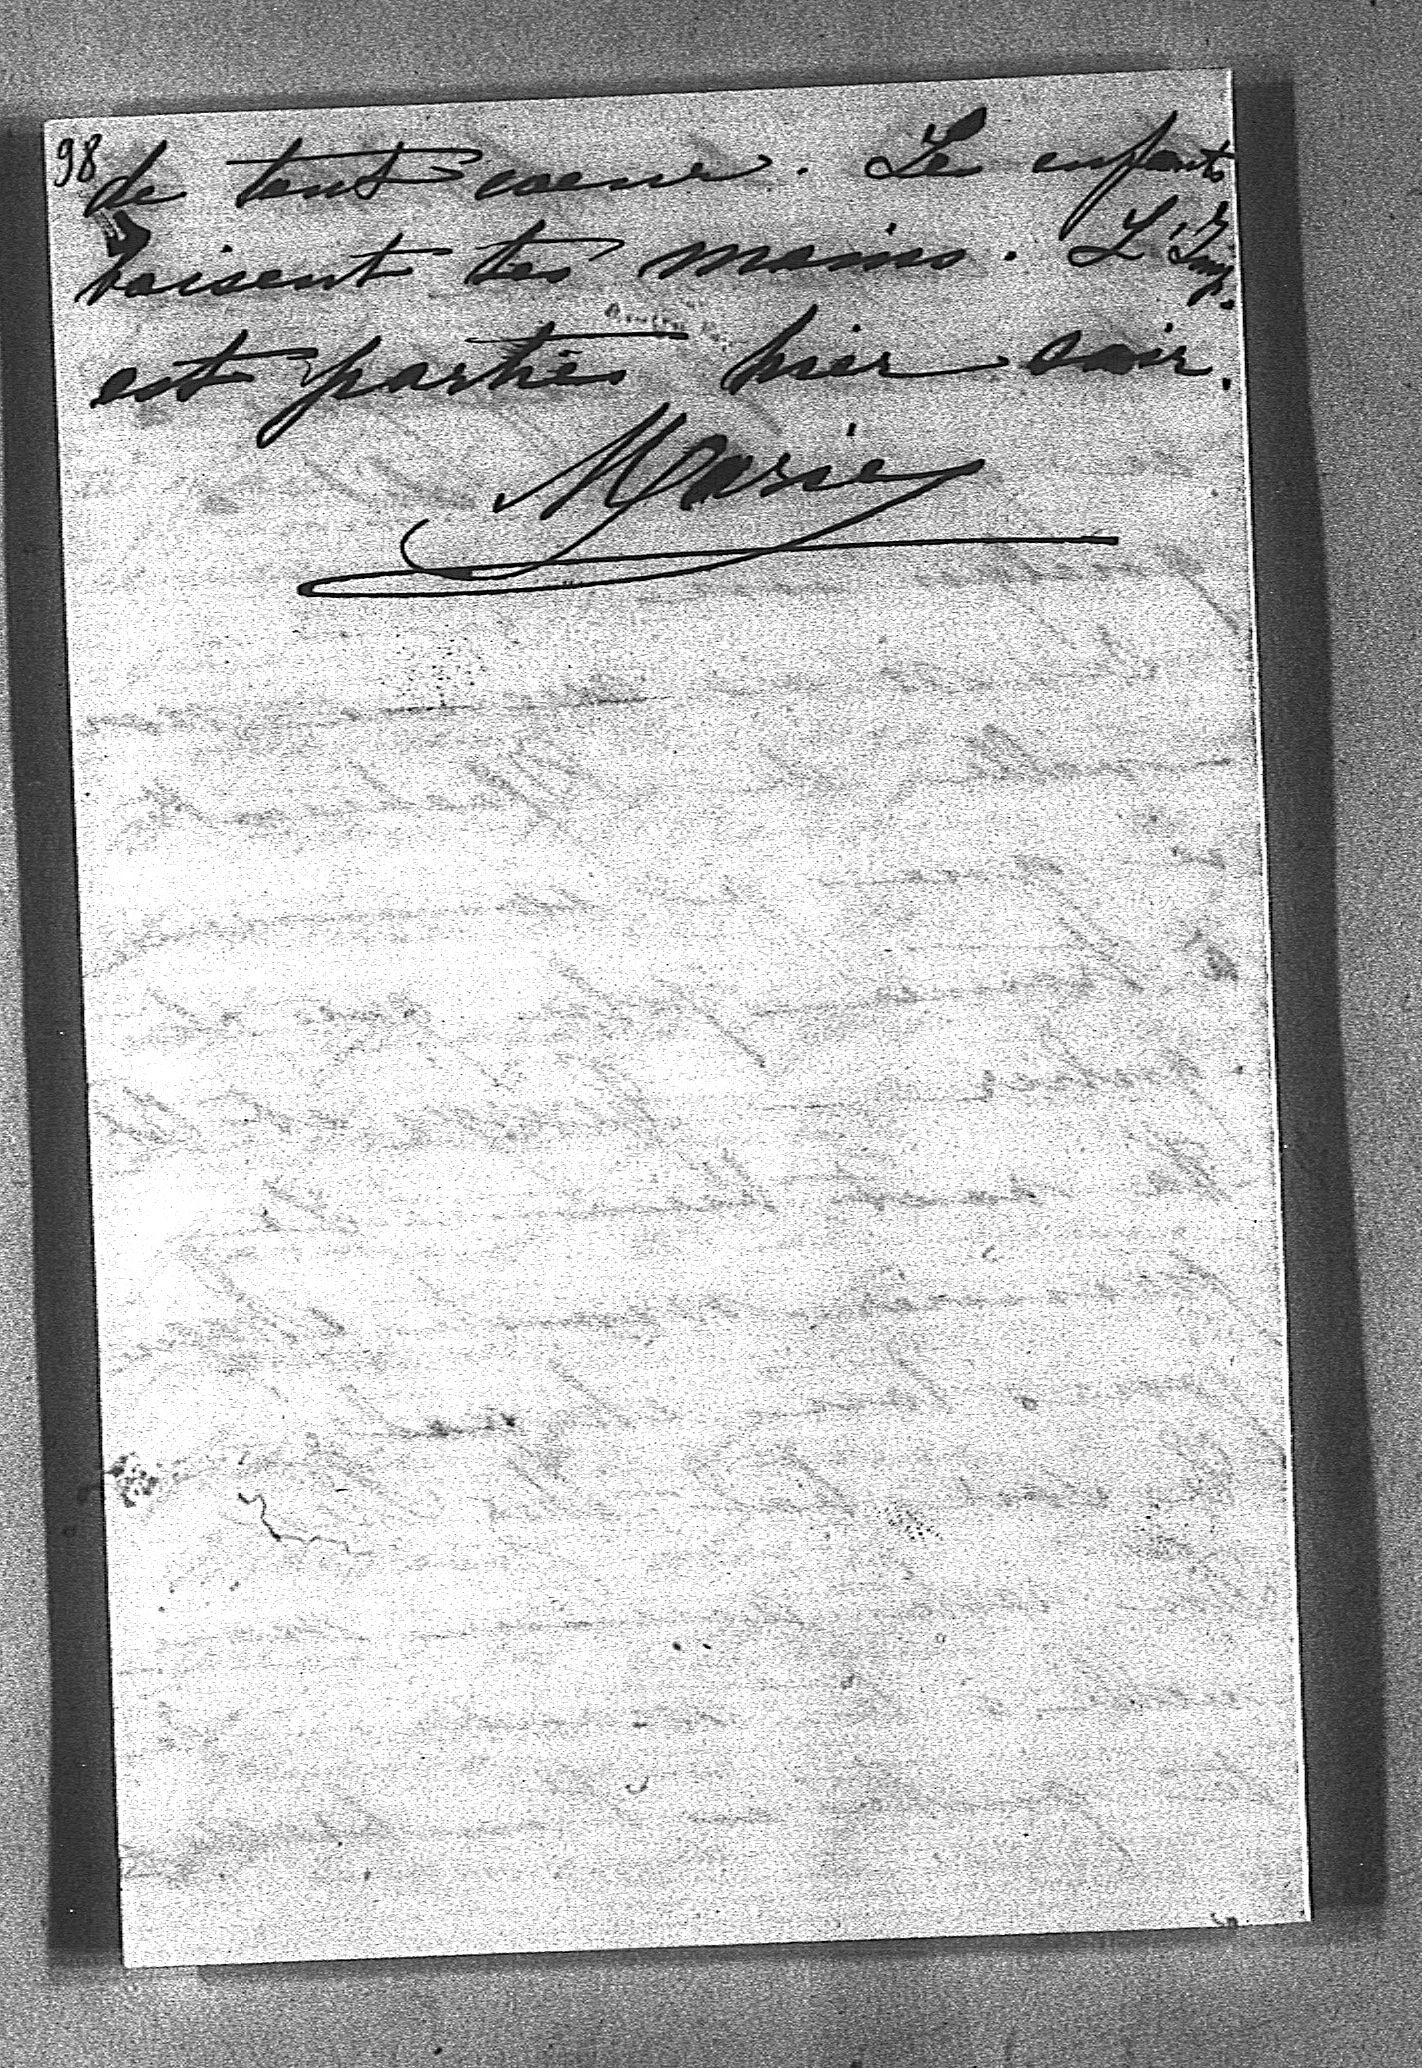 98
de tout coeur. Le enfants
baisent tes mains. L'Imp.
est partie hier soir.
Marie